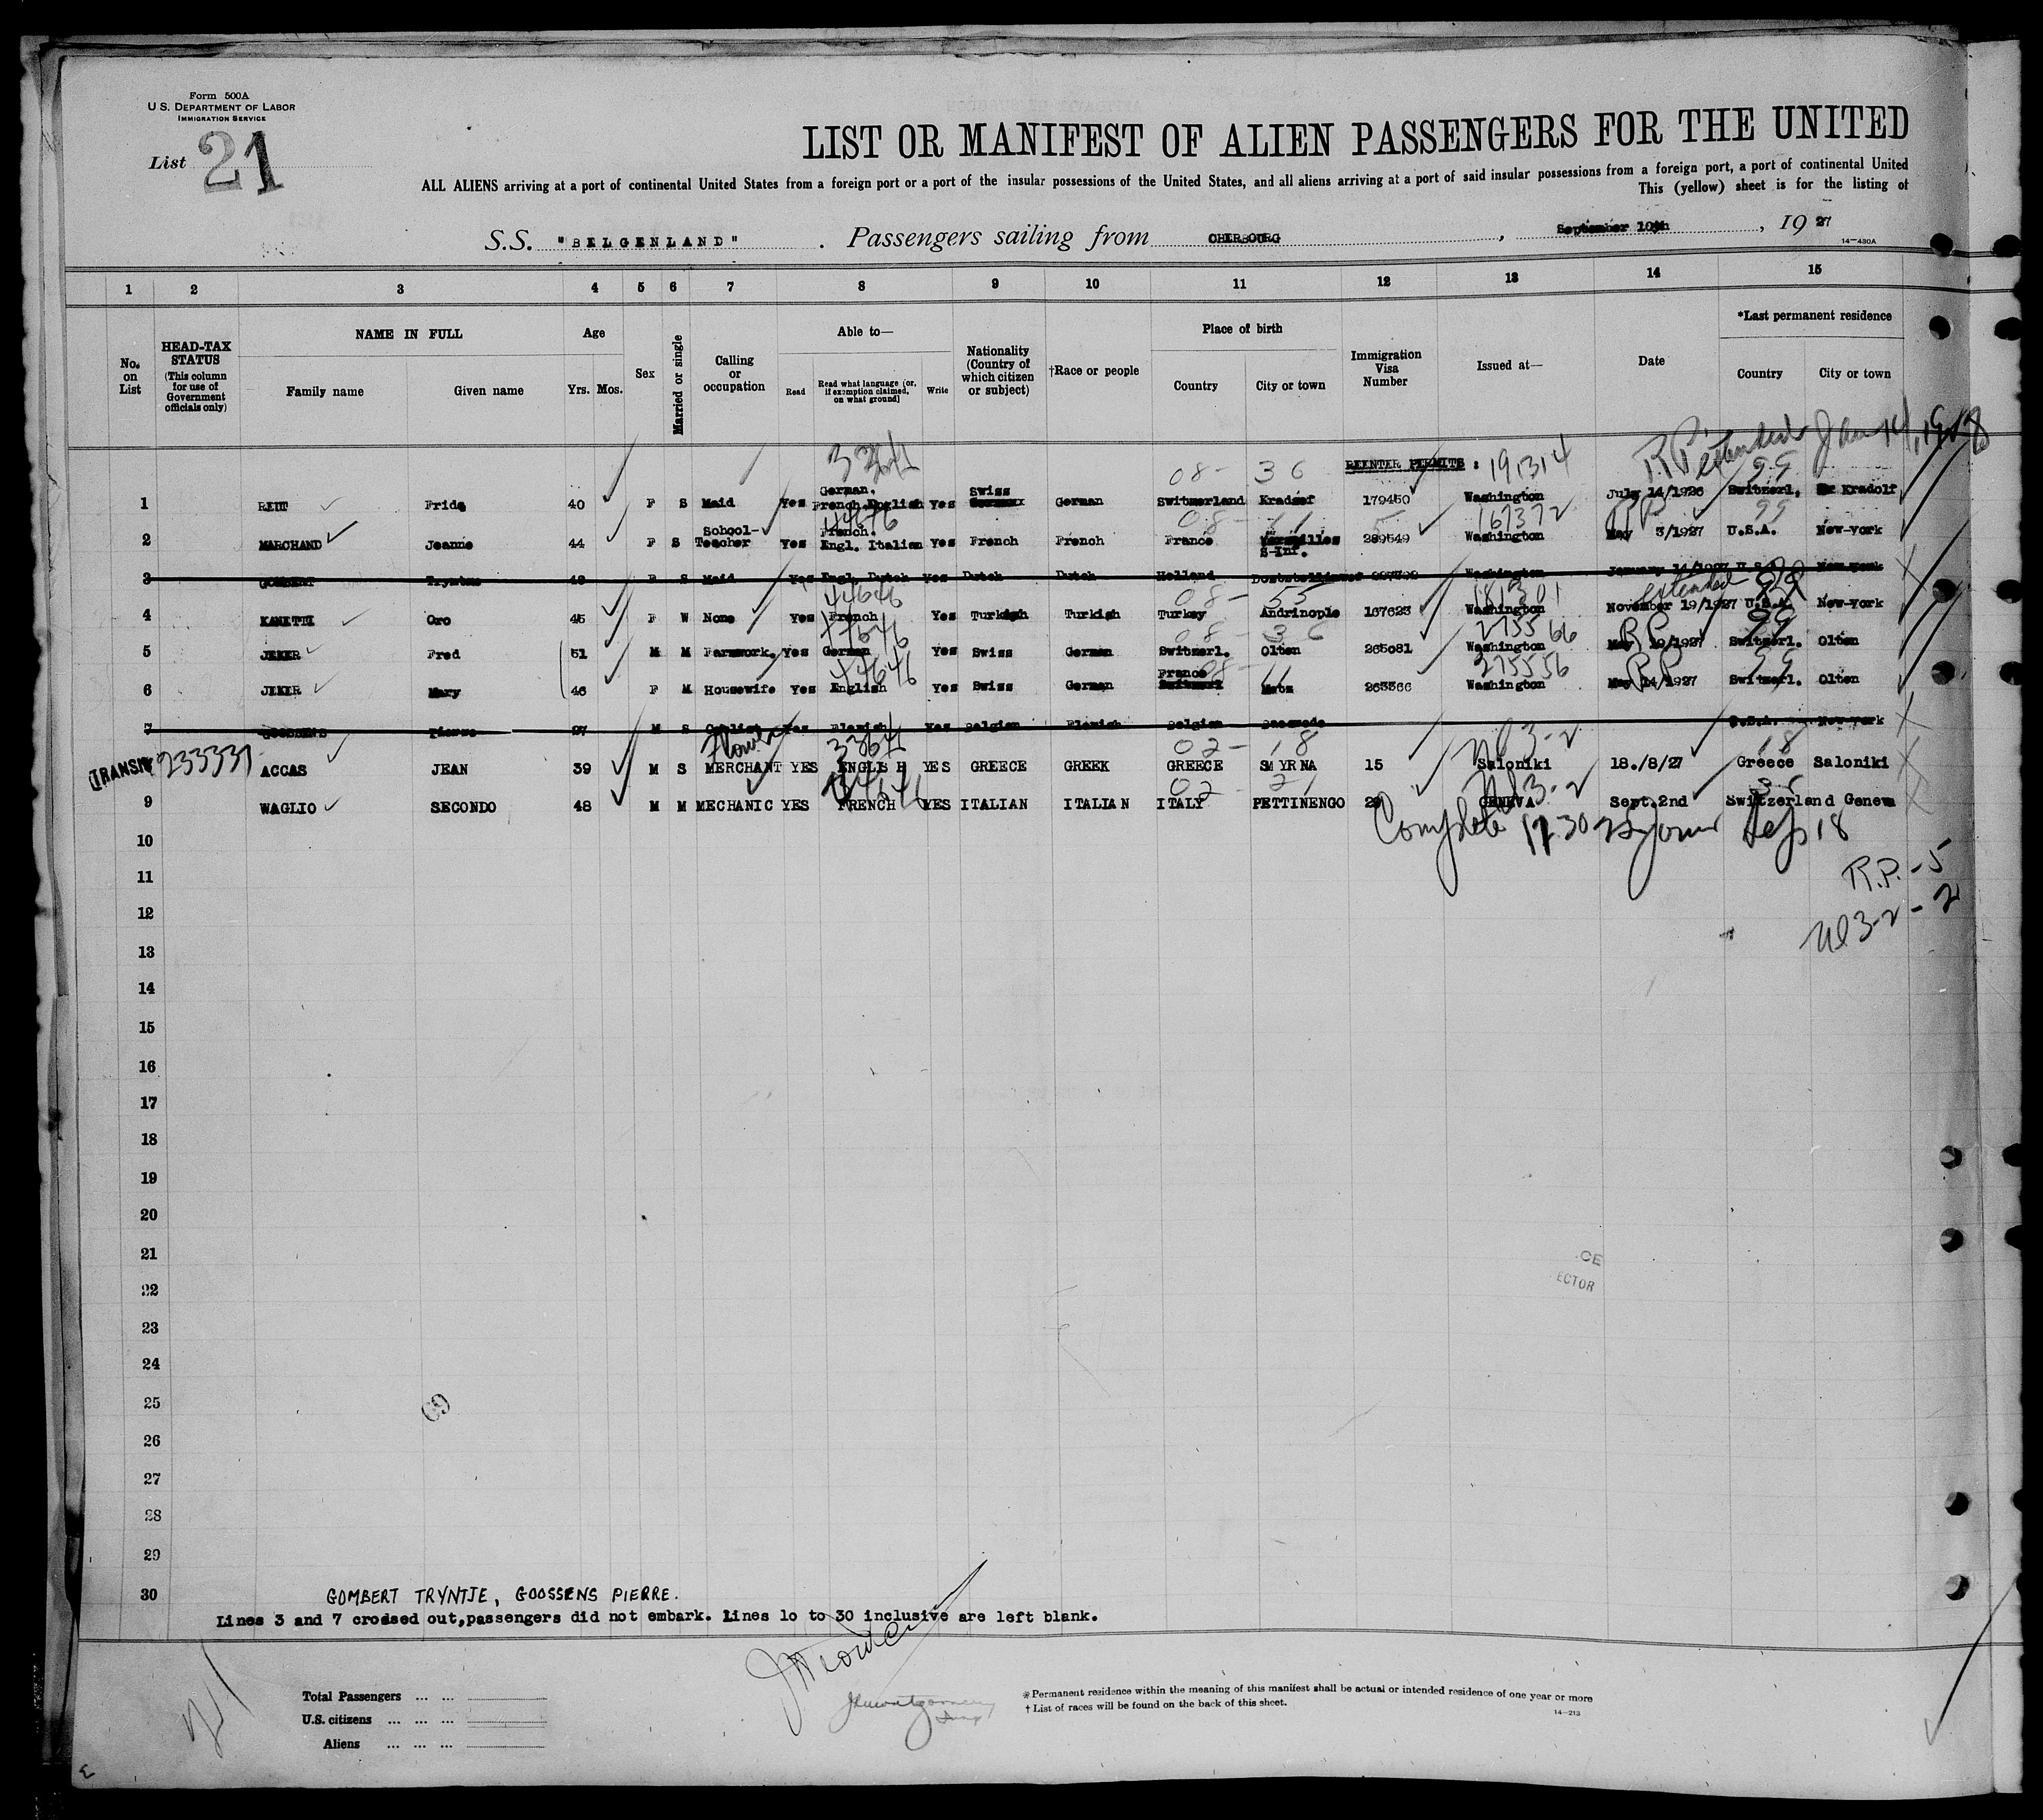 Form 500A
U.S. DEPARTMENT OF LABOR
IMMIGRATION SERVICE
List 21
LIST OR MANIFEST OF ALIEN PASSENGERS FOR THE UNITED
ALL ALIENS arriving at a port of continental United States from a foreign port or a port of the insular possessions of the United States, and all aliens arriving at a port of said insular possessions from a foreign port, a port of continental United
This (yellow) sheet is for the listing of
S.S. "BELGENLAND" . Passengers sailing from CHERBOURG , September 10th , 19 27
14—430A
1 2 3 4 5 6 7 8 9 10 11 12 13 14 15
No. on List
HEAD-TAX STATUS (This column for use of Government officials only)
NAME IN FULL
Family name Given name
Age
Yrs. Mos.
Sex
Married or single
Calling or occupation
Able to—
Read Read what language [or, if exemption claimed, on what ground] Write
Nationality (Country of which citizen or subject)
†Race or people
Place of birth
Country City or town
Immigration Visa Number
Issued at—
Date
*Last permanent residence
Country City or town
33641 08- 36 REENTER PERMITS : 191314 RP extended Jan 14, 1928 99
1 Frida 40 F S Maid Yes German. French.English Yes Swiss German Switzerland 179450 Washington July 14/1926 Switzerl. Kradolf
44646 08- 11 167372 RP 99
2 MARCHAND Jeanne 44 F S School-Teacher Yes French. Engl. Italian Yes French French France S-Inf. 289549 Washington May 3/1927 U.S.A. New-York
3 GOMBERT Tryntje F S Maid Yes Engl. Dutch Yes Dutch Dutch Holland Washington January 14/1927 U.S.A. New-York
44646 08- 55 181301 extended 99
4 KANETTI Oro 45 F W None Yes French Yes Turkish Turkish Turkey Andrinople 167623 Washington November 19/1927 U.S.A. New-York
08- 36 275566 RP 99
5 JEKER Fred 51 M M Farmwork. Yes German Yes Swiss German Switzerl. Olten 265081 Washington May 19/1927 Switzerl. Olten
44646 08- 11 275556 RP 99
6 JEKER Mary 46 F M Housewife Yes English Yes Swiss German France Metz Washington May 14/1927 Switzerl. Olten
7 GOOSSENS Pierre 27 M S Yes Flemish Yes Belgian Flemish Belgium U.S.A. New-York
Flower 33641 02- 18 Nl 3-2 18
TRANSIT 233331 ACCAS JEAN 39 M S MERCHANT YES ENGLIS H YES GREECE GREEK GREECE SMYRNA 15 Saloniki 18./8/27 Greece Saloniki
44646 02- 21 Nl 3-2
9 WAGLIO SECONDO 48 M M MECHANIC YES FRENCH YES ITALIAN ITALIAN ITALY PETTINENGO GENEVA Sept.2nd Switzerland Geneva
10
Complete 18
11
R.P. - 5
12
Nl 3-2 - 2
13
14
15
16
17
18
19
20
21
CE
ECTOR
22
23
24
25
26
27
28
29
30
GOMBERT TRYNTJE, GOOSSENS PIERRE.
Lines 3 and 7 crossed out,passengers did not embark. Lines 1o to 30 inclusive are left blank.
Total Passengers ... ...
U.S. citizens ... ... ...
Aliens ... ... ...
*Permanent residence within the meaning of this manifest shall be actual or intended residence of one year or more
† List of races will be found on the back of this sheet.
14—213